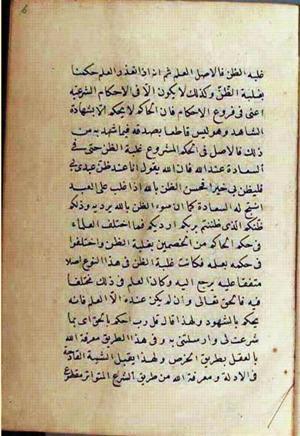 غلبة الظن فالاصل العلم ثم اذا تعذر العلم حكمنا
بغلبة الظن وكذلك لا يكون الا في الاحكام الشرعيه
اعنى في فروع الاحكام فان الحاكم لا يحكم الا بشهادة
الشاهد وهو ليس قاطعا بصدقه فيما شهد به من
ذلك فالاصل في الحكم المشروع غلبة الظن حتى في
السعادة عند الله فان الله يقول انا عند ظن عبدى بي
فليظن بي خيرا فحسن الظن بالله اذا غلب على العبد
انتج له السعادة كما ان سوء الظن بالله يرديه وذلكم
ظنكم الذى ظننتم بربكم ارديكم فما اختلف العلماء
في حكم الحاكم من الخصمين بغلبة الظن واختلفوا
في حكمه بعلمه فكانت غلبة الظن في هذا النوع اصلا
متفقا عليه يرجع اليه وكان العلم في ذلك مختلفا
فيه فالحق تعالى وان لم يكن عنده الا العلم فانه
يحكم بالشهود ولهذا قال قل رب احكم بالحق اى بما
شرعت لى وارسلتنى به وفي هذا الطريق معرفة الله
بالعقل بطريق الخرص ولهذا يقبل الشبه القادحة
في الادلة ومعرفة الله من طريق الشرع المتواتر مقطوع